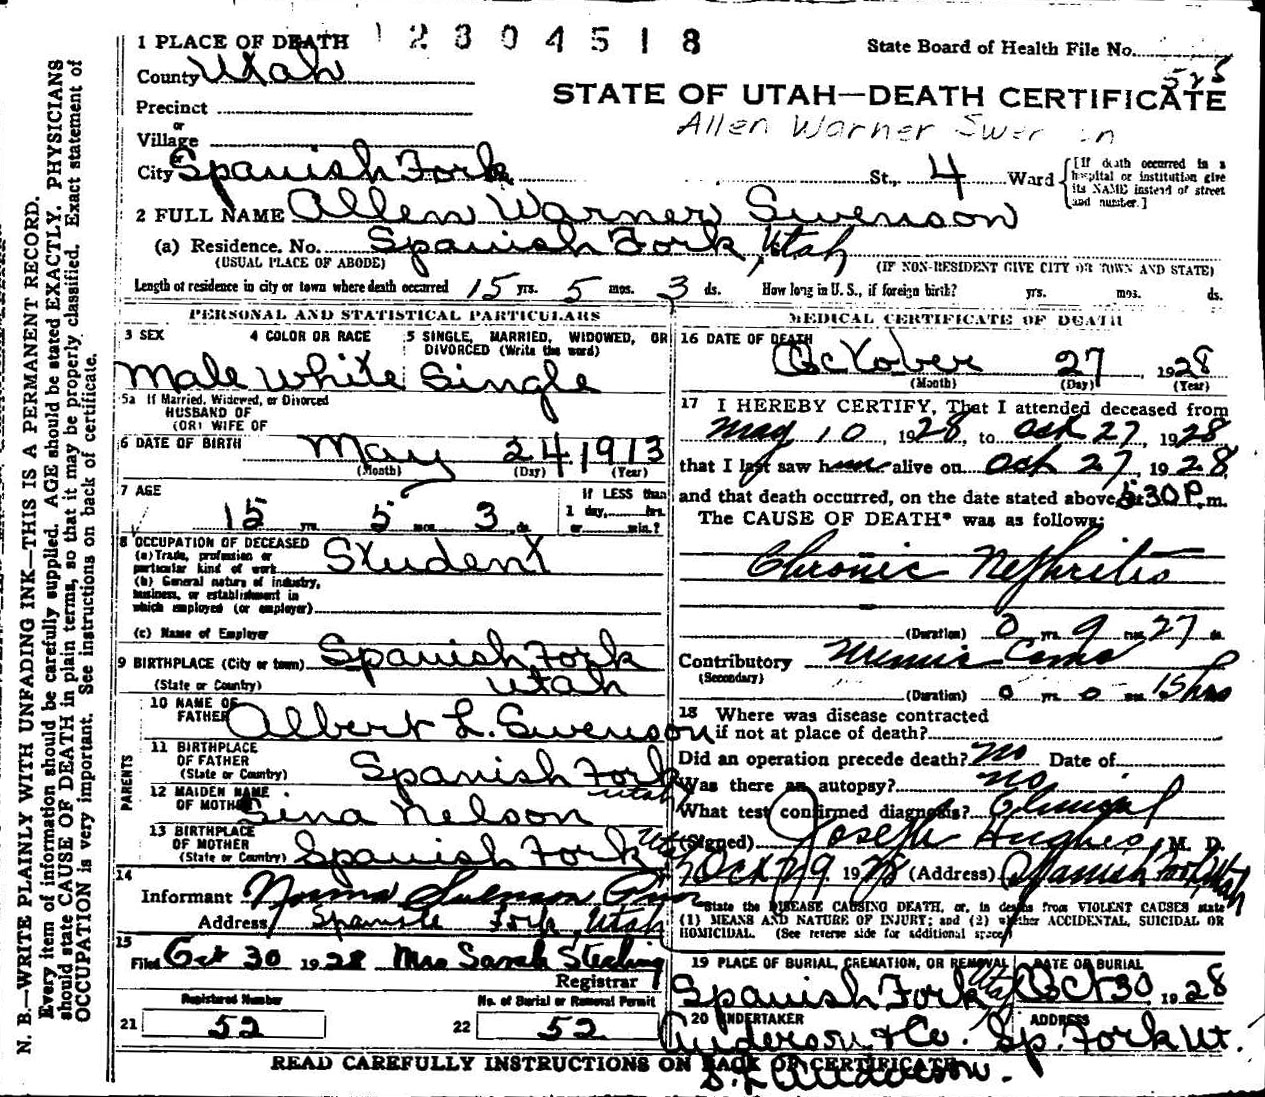 1 PLACE OF DEATH 12304518 State Board of Health File No.
County Utah 525
Precinct STATE OF UTAH—DEATH CERTIFICATE
or
Village Allen Warner
or
City Spanish Fork St., 4 Ward [If death occurred in a hospital or institution give its NAME instead of street and number.]
2 FULL NAME Allen Warner Swenson
(a) Residence. No. Spanish Fork, Utah
(USUAL PLACE OF ABODE) (IF NON-RESIDENT GIVE CITY OR TOWN AND STATE)
Length of residence in city or town where death occurred 15 yrs. 5 mos. 3 ds. How long in U. S., if foreign birth? yrs. mos. ds.
PERSONAL AND STATISTICAL PARTICULARS
3 SEX 4 COLOR OR RACE 5 SINGLE, MARRIED, WIDOWED, OR DIVORCED (Write the word)
Male White Single
5a If Married, Widowed, or Divorced
HUSBAND OF
(OR) WIFE OF
6 DATE OF BIRTH May 24 1913
(Month) (Day) (Year)
7 AGE If LESS than
15 yrs. 5 mos. 3 ds. 1 day, hrs.
or min.?
8 OCCUPATION OF DECEASED
(a) Trade, profession or particular kind of work Student
(b) General nature of industry, business, or establishment in which employed (or employer)
(c) Name of Employer
9 BIRTHPLACE (City or town) Spanish Fork
(State or Country) Utah
PARENTS
10 NAME OF FATHER Albert L. Swenson
11 BIRTHPLACE OF FATHER
(State or Country) Spanish Fork Utah
12 MAIDEN NAME OF MOTHER Sena Nelson
13 BIRTHPLACE OF MOTHER
(State or Country) Spanish Fork Ut
14
Informant Norma Swenson
Address Spanish Fork, Utah
15
Filed Oct 30 1928 Mrs Sarah Sterling
Registrar
Registered Number No. of Burial or Removal Permit
21 52 22 52
MEDICAL CERTIFICATE OF DEATH
16 DATE OF DEATH October 27, 1928
(Month) (Day) (Year)
17 I HEREBY CERTIFY, That I attended deceased from
May 10, 1928, to Oct 27, 1928
that I last saw him alive on Oct 27, 1928,
and that death occurred, on the date stated above, at 5 30 P. m.
The CAUSE OF DEATH* was as follows:
Chronic Nephritis
(Duration) 0 yrs. 9 mos. 27 ds.
Contributory Uremic Coma
(Secondary)
(Duration) 0 yrs. 0 mos. 15 hrs
18 Where was disease contracted
if not at place of death?
Did an operation precede death? No Date of
Was there an autopsy? no
What test confirmed diagnosis? Clinical
(Signed) Joseph Hughes, M. D.
Oct 29 1928 (Address) Spanish Fork, Utah
*State the DISEASE CAUSING DEATH, or, in deaths from VIOLENT CAUSES state
(1) MEANS AND NATURE OF INJURY; and (2) whether ACCIDENTAL, SUICIDAL OR
HOMICIDAL. (See reverse side for additional space)
19 PLACE OF BURIAL, CREMATION, OR REMOVAL DATE OF BURIAL
Spanish Fork Utah Oct 30 1928
20 UNDERTAKER ADDRESS
Anderson & Co. Sp. Fork Ut.
READ CAREFULLY INSTRUCTIONS ON BACK OF CERTIFICATE
N. B.—WRITE PLAINLY WITH UNFADING INK—THIS IS A PERMANENT RECORD.
Every item of information should be carefully supplied. AGE should be stated EXACTLY. PHYSICIANS
should state CAUSE OF DEATH in plain terms, so that it may be properly classified. Exact statement of
OCCUPATION is very important. See instructions on back of certificate.